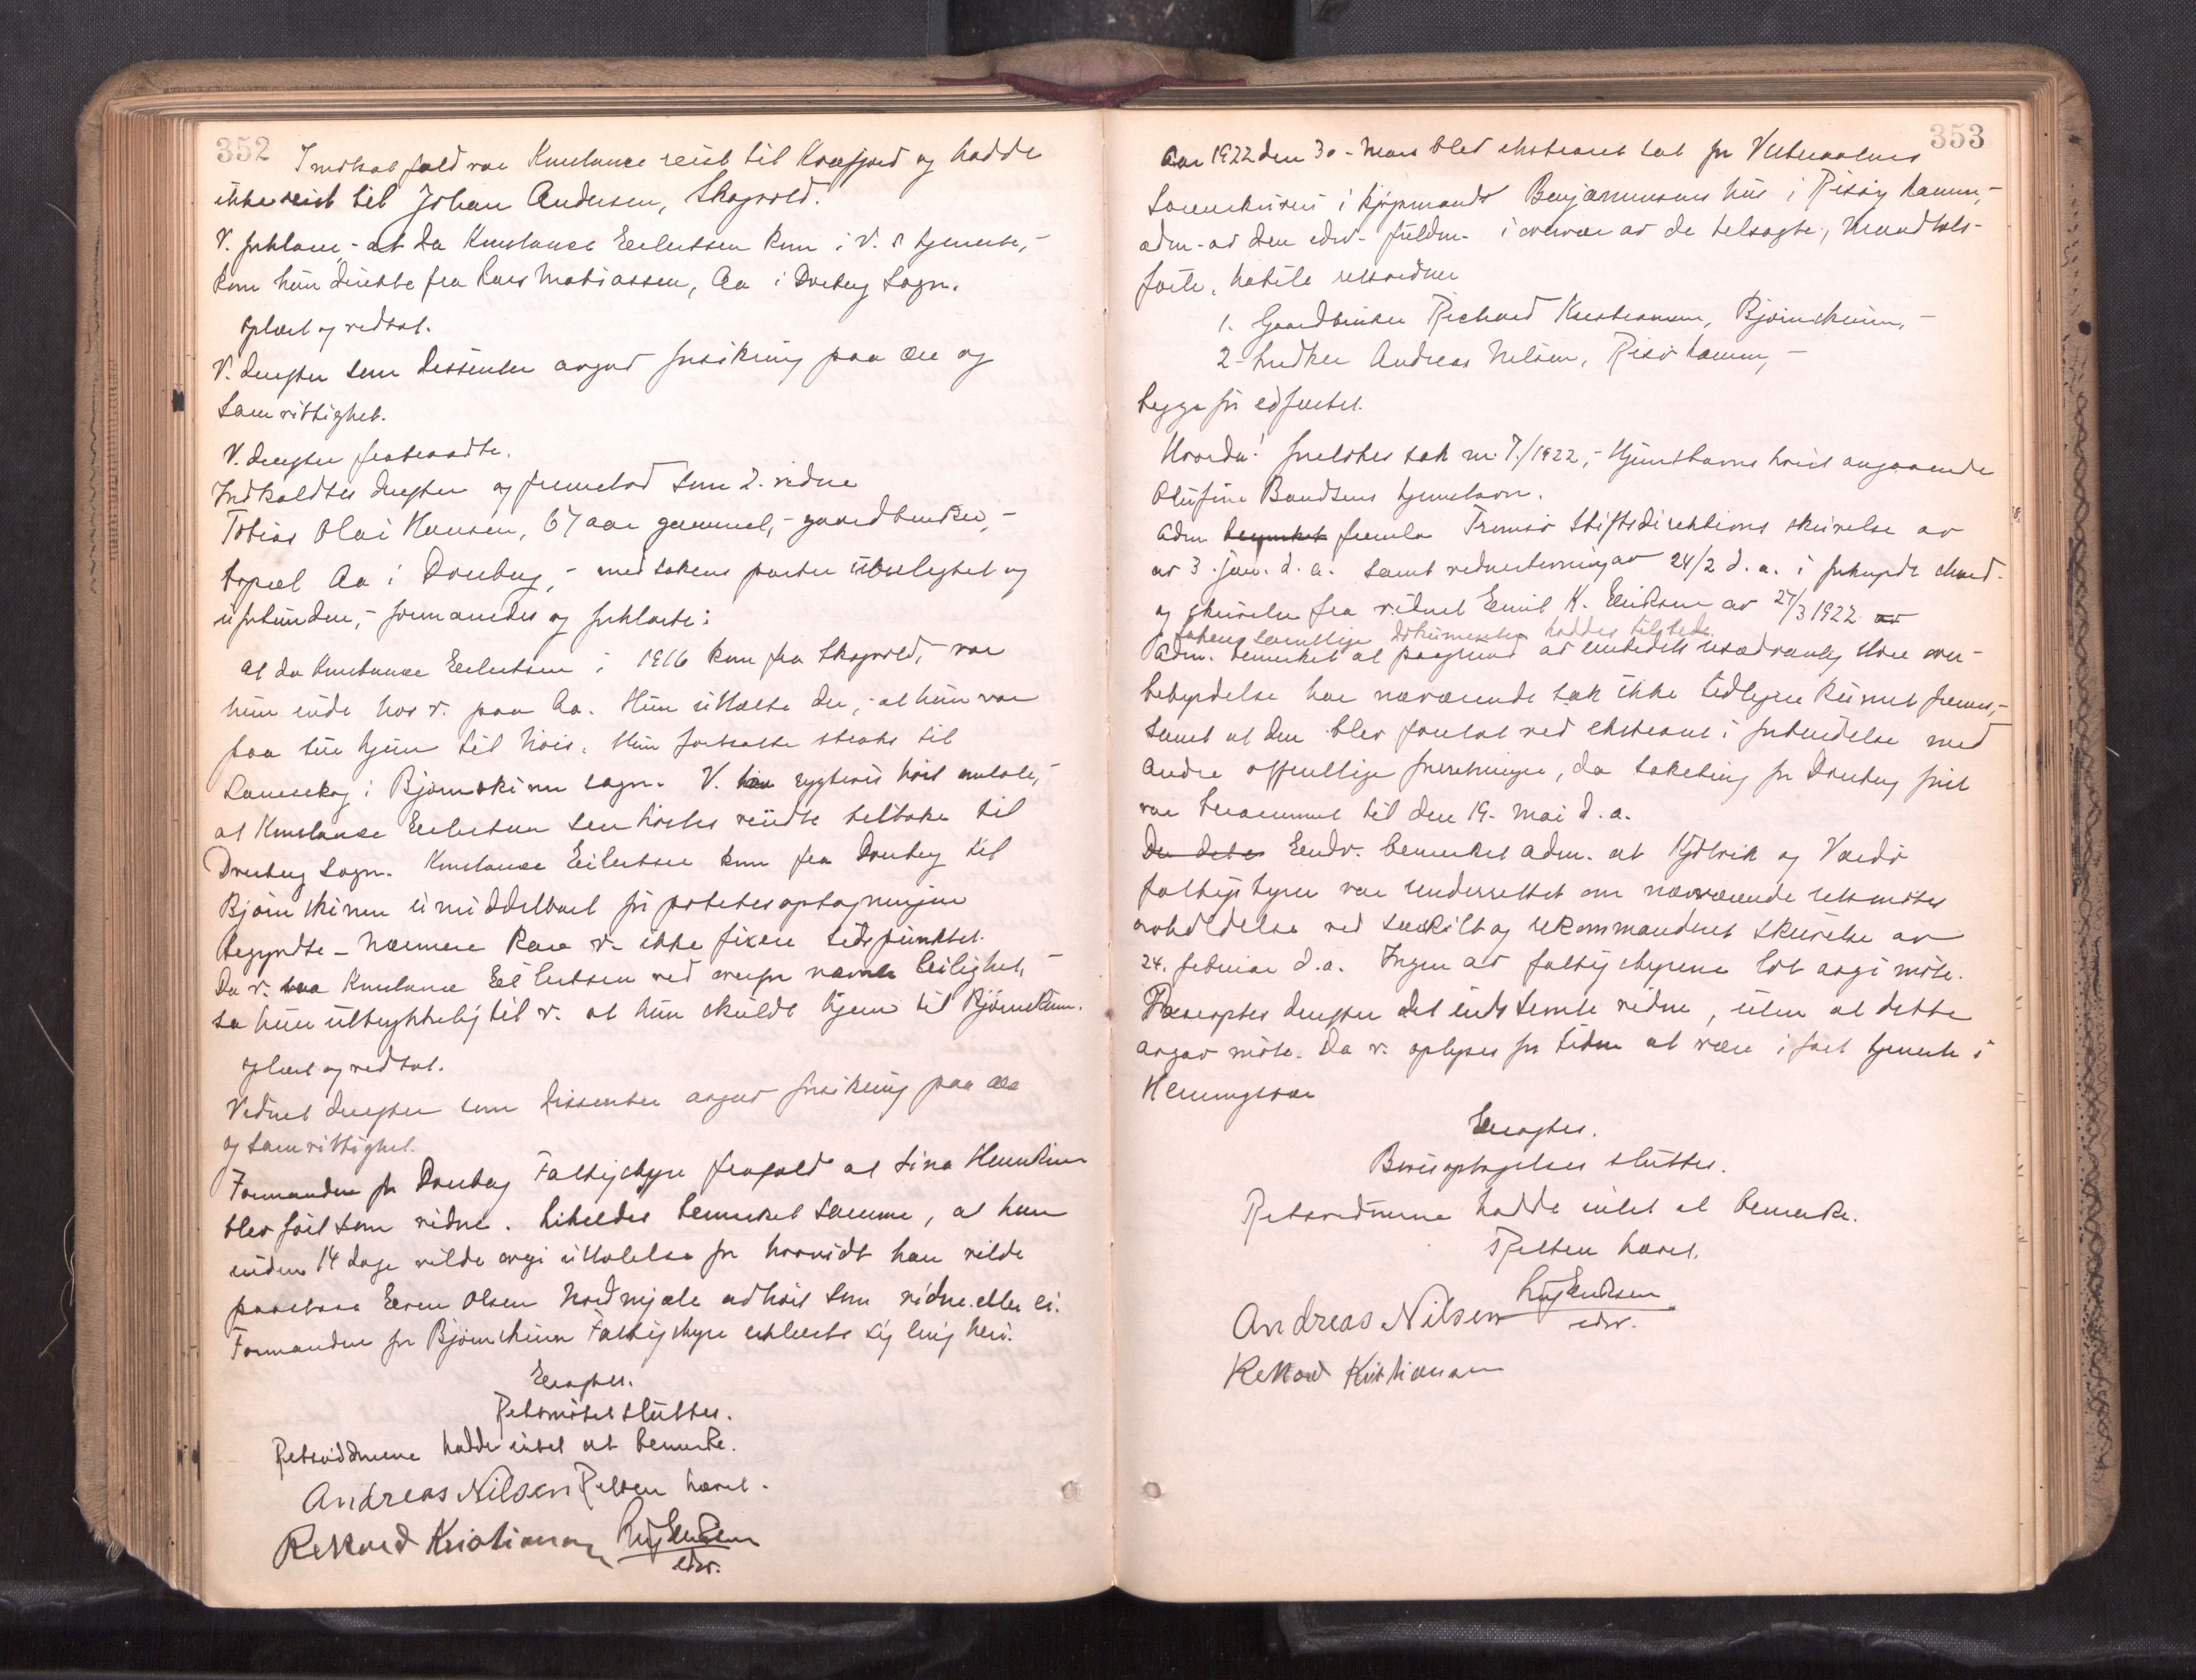 352
I motsat fald var Konstance reist til Kvæfjord og hadde
ikke reist til Johan Andersen, Skogvold.
V. forklarer - at da Konstance Eilertsen kom i V.s tjeneste, -
kom hun direkte fra Lars Mathiassen, Aa i Dverberg Sogn.
Oplæst og vedtat.
V. derefter som dissenter avgav forsikring paa ære og
samvittighet.
V. derefter fratraadte.
Indkaldtes derefter og fremstod som 2. vidne
Tobias Olai Hansen, 67 aar gammel, - gaardbruker, -
bopæl Aa i Dverberg, - med sakens parter ubeslegtet og
uforbunden, - formanedes og forklarte:
at da Konstance Eilertsen i 1916 kom fra Skogvold, - var
hun inde hos v. paa Aa. Hun uttalte da, - at hun var
paa tur hjem til hois. Hun fortsatte straks til
Lanesskog i Bjørnskinn sogn. V. har rygtevis hørt omtale, -
at Konstance Eilertsen sen høstes reiste tilbake til
Dverberg Sogn. Konstance Eilertsen kom fra Dverberg til
Bjørnskinn umiddelbart før potetesoptagningen
begyndte - nærmere kan v. ikke fixere tidspunktet.
Da v. saa Konstance Eilertsen ved ovenfor nævnte leilighet, -
sa hun uttrykkelig til v. at hun skulde hjem til Bjørnskinn.
Oplæst og vedtat.
Vidnet derefter som dissenter avgav forsikring paa ære
og samvittighet.
Formanden for Dverberg Fattigstyre frafaldt at Lina Henriksen
blev ført som vidne. Likeledes bemerket samme, at han
inden 14 dage vilde avgi uttalelse for hvorvidt han vilde
paastaa Even Olsen Nordmjele avhørt som vidne eller ei.
Formanden for Bjørnskinn Fattigstyre erklærte sig enig heri.
Eragtes.
Retsmøtet sluttes.
Retsvidnerne hadde intet at bemerke.
Andreas Nilsen Retten hævet.
Rikard Kristiansen
edsv.
353
Aar 1922 den 30. Mars blev ekstraret sat for Vesteraalens
Sorenskriveri i kjøpmand Benjaminsens hus i Risøyhamn, -
adm. av den edsv. fuldm. i overvær av de tilsagte, mandtals-
førte, habile retsvidner
1. Gaardbruker Richard Kristiansen, Bjørnskinn, -
2. Snedker Andreas Nilsen, Risøhamn, -
begge før edfæstet.
Hvorda! foretokes sak nr. 7/1922, - Hjemstavns hvist angaaende
Olufine Bendtsens hjemstavn.
Adm. bemerket fremla Tromsø Stiftsdirektions skrivelse av
av 3. jan. d.a. samt vidnestevning av 24/2 d.a. i forkyndt stand.
og skrivelse fra vidnet Emil K. Eriksen av 27/3 1922. av
Sakens samtlige dokumenter haddes tilstede.
Adm. bemerket at paagrund av embedets usædvanlig store over-
bebyrdelse har nærværende sak ikke tidligere kunnet fremmes, -
samt at den blev foretat ved ekstraret i forbindelse med
andre offentlige forretninger, da saketing for Dverberg først
var berammet til den 19. mai d.a.
Der detes Endv. bemerket adm. at Kjelvik og Vardø
fattigstyre var underrettet om nærværende retsmøtes
avholdelse ved særskilt og rekommanderet skrivelse av
24. februar d.a. Ingen av fattigstyrene lot avgi møte.
Paaroptes derefter det indstevnte vidne, uten at dette
avgav møte. Da v. oplyses for tiden at være i fast tjeneste i
Henningsvær
Eragtes.
Bevisoptagelsen sluttes.
Retsvidnerne hadde intet at bemerke.
Retten hævet.
Andreas Nilsen
edsv.
Rikard Kristiansen